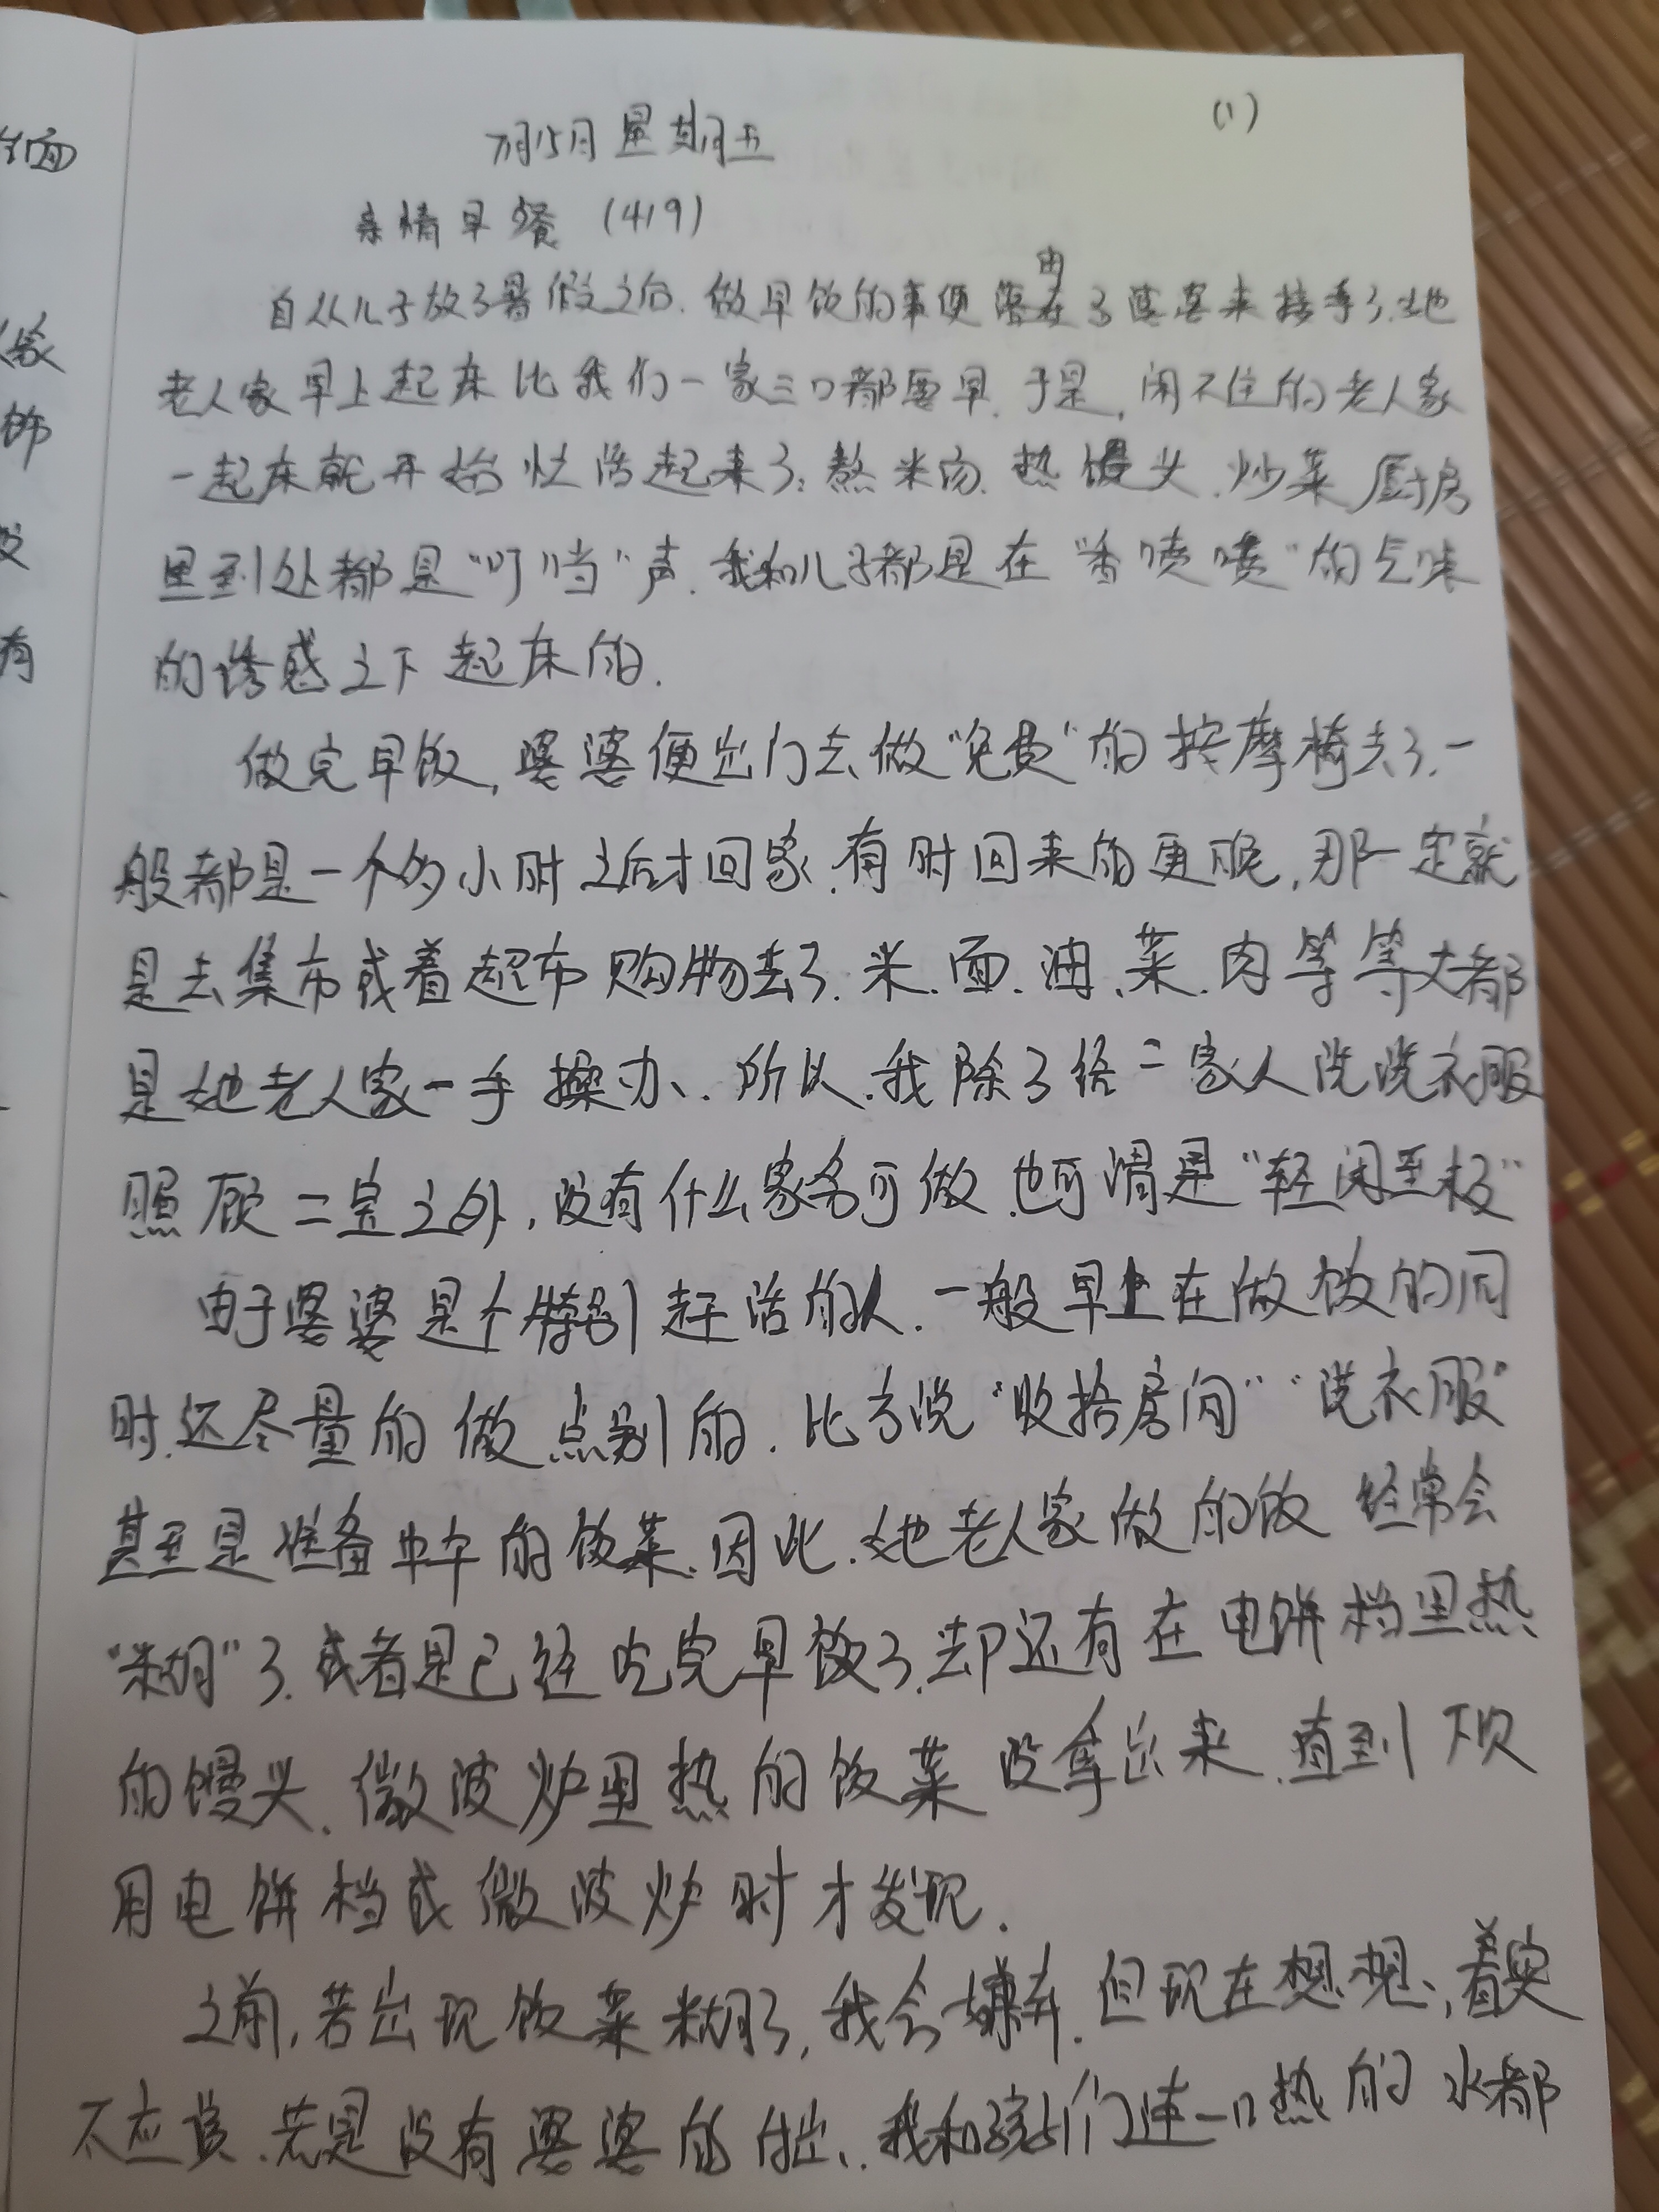 (1)
7月15日 星期五
亲情早餐 (419)
由
自从儿子放了暑假之后，做早饭的事便落在了婆婆来接手了，她
老人家早上起床比我们一家三口都要早，于是，闲不住的老人家
一起床就开始忙活起来了：熬米汤、热馒头、炒菜，厨房
里到处都是“叮当”声，我和儿子都是在“香喷喷”的气味
的诱惑之下起床的。
做完早饭，婆婆便出门去做“免费”的按摩椅去了，一
般都是一个多小时之后才回家，有时回来的更晚，那一定就
是去集市或着超市购物去了，米、面、油、菜、肉等等大都
是她老人家一手操办、所以，我除了给一家人洗洗衣服
照顾二宝之外，没有什么家务可做，也可谓是“轻闲至极”
由于婆婆是个特别赶活的人，一般早上在做饭的同
时，还尽量的做点别的，比方说“收拾房间”“洗衣服”
甚至是准备中午的饭菜，因此，她老人家做的饭经常会
“糊”了，或者是已经吃完早饭了，却还有在电饼档里热
的馒头、微波炉里热的饭菜没拿出来，直到下次
用电饼档或微波炉时才发现。
之前，若出现饭菜糊了，我会嫌弃，但现在想想，着实
不应该，若是没有婆婆的付出，我和孩子们连一口热的水都
面
做
饰
有